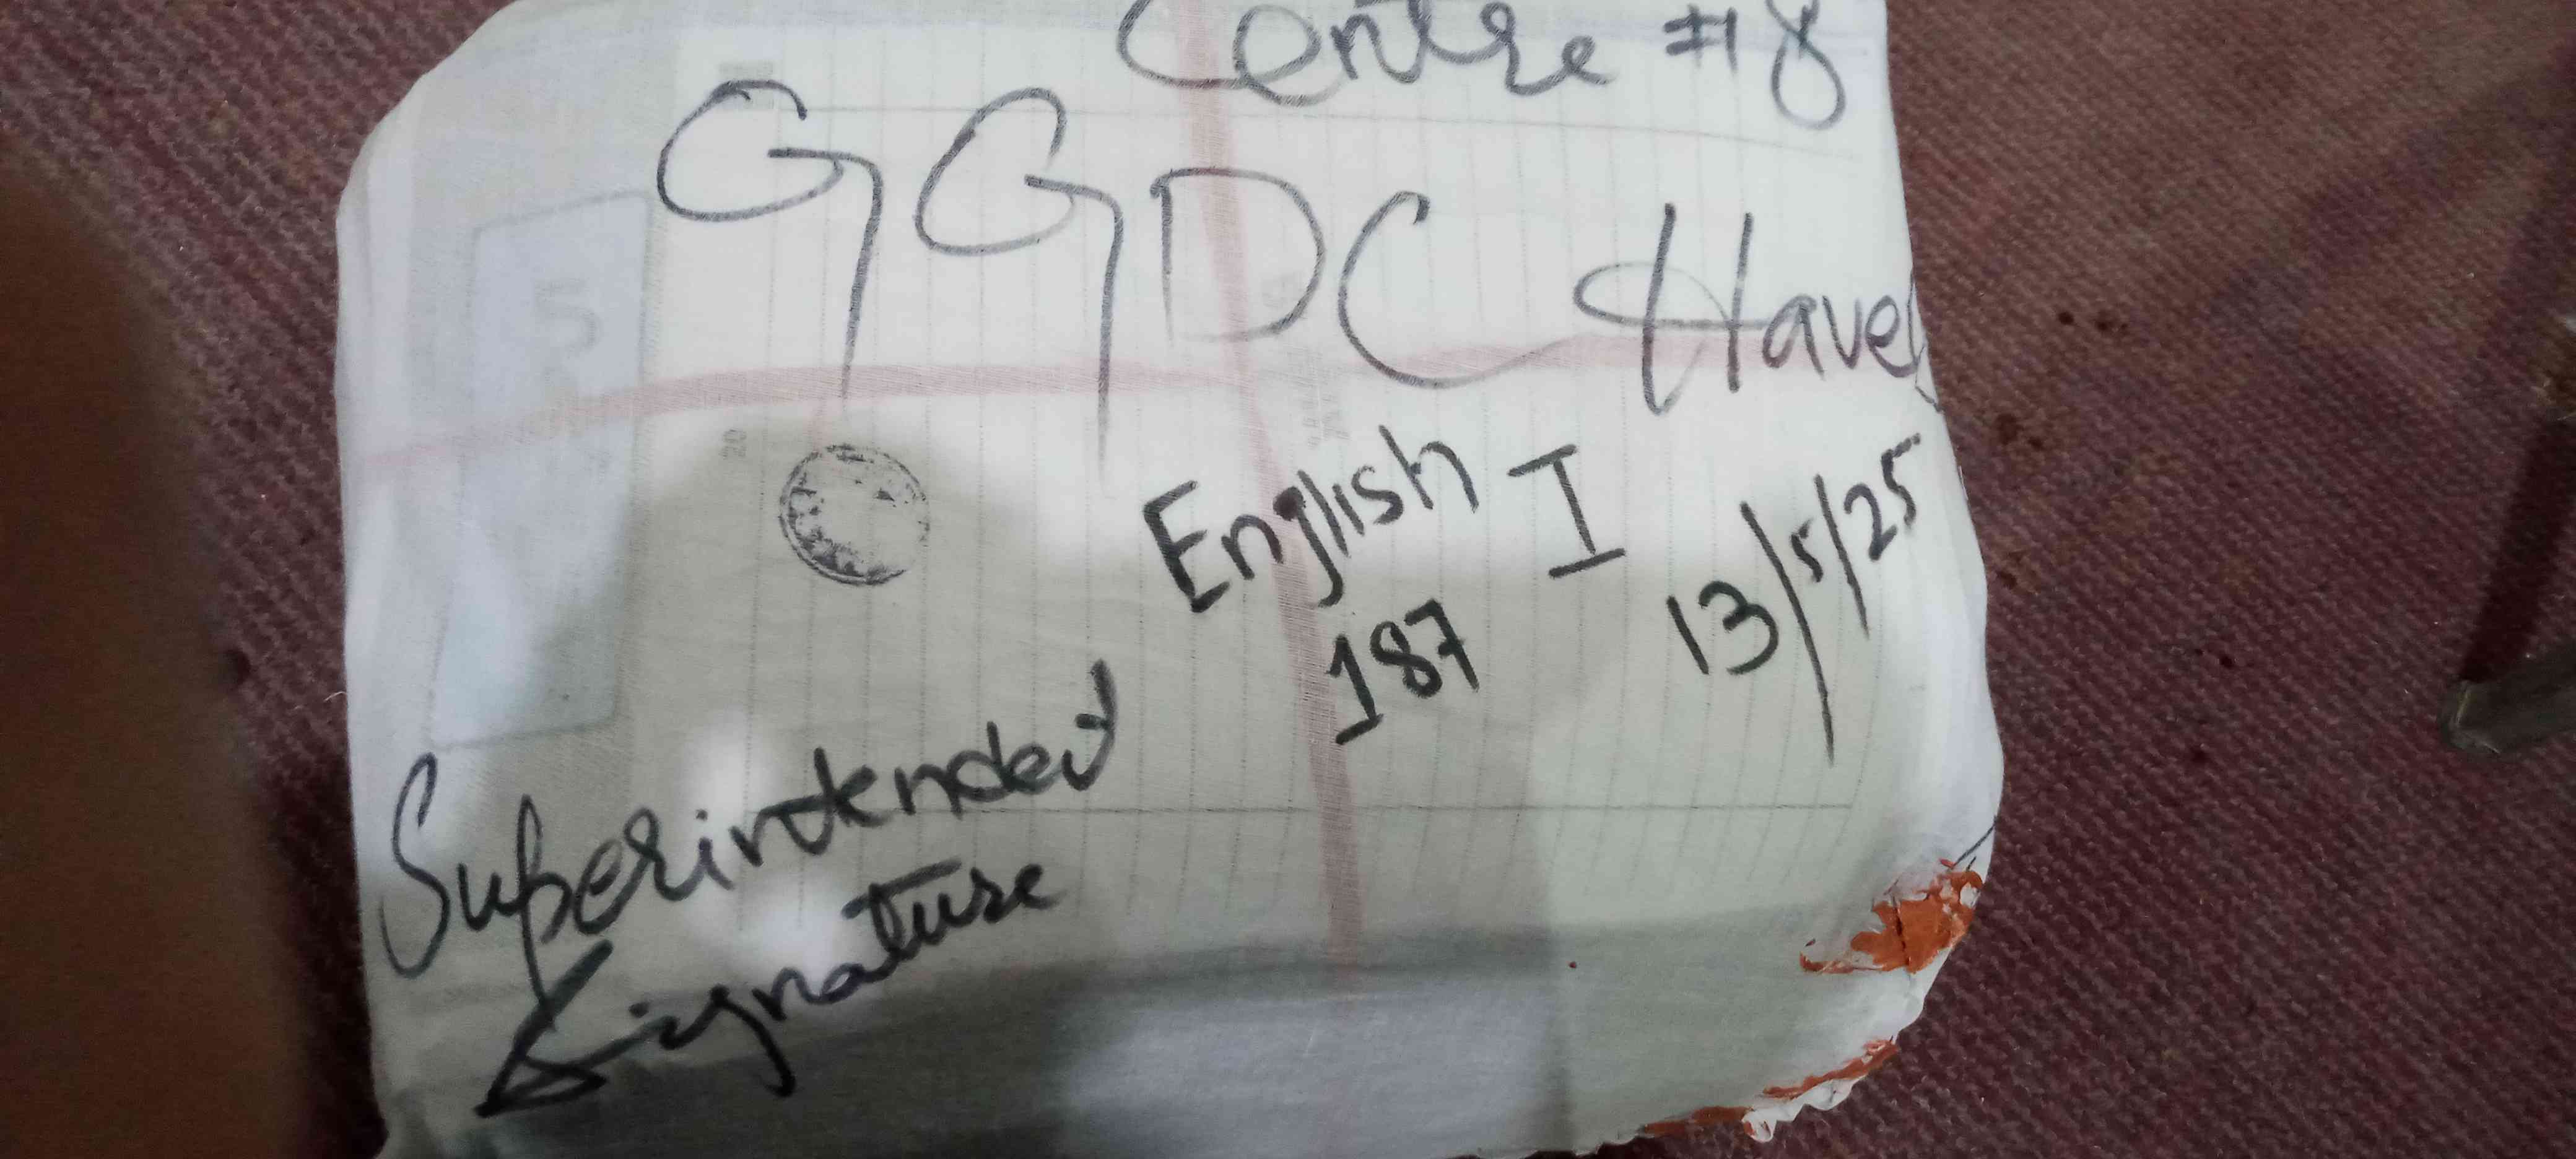 Centre #18
GGDC Havel
English I
187
13/5/25
Superintendent
Signature